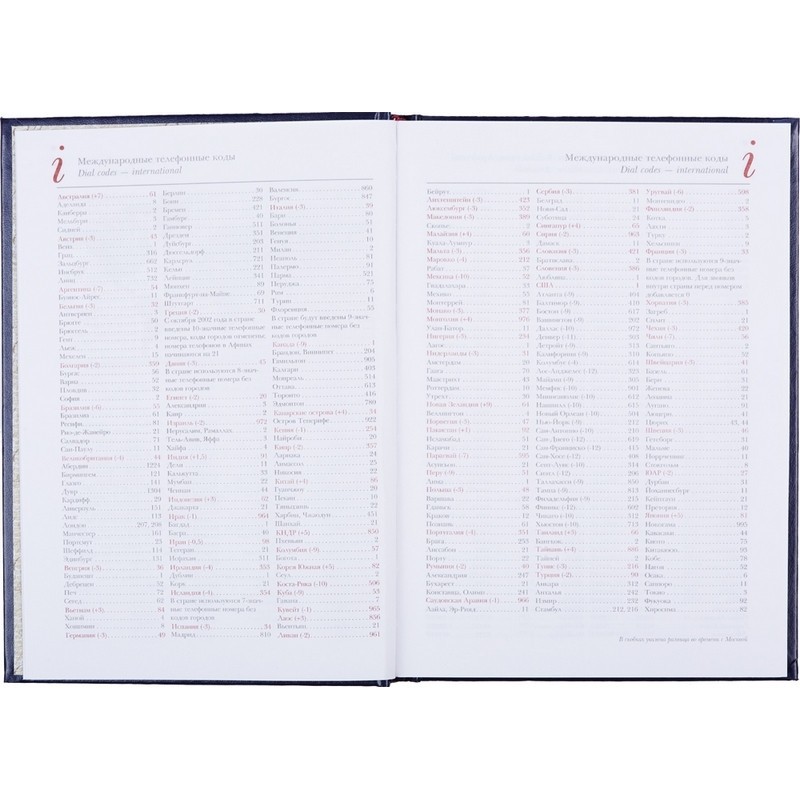 Международные телефонные коды
Dial codes — international
Австралия (+7) 61
Аделаида 8
Канберра 2
Мельбурн 3
Сидней 2
Австрия (-2) 43
Вена 1
Грац 316
Зальцбург 662
Инсбрук 512
Линц
Аргентина (-7) 54
Буэнос-Айрес 11
Бельгия (-2) 32
Антверпен 3
Брюгге 50
Брюссель 2
Гент 9
Льеж 4
Мехелен 15
Болгария (-2) 359
Бургас 56
Варна 52
Пловдив 32
София 2
Бразилия (-6) 55
Бразилиа 61
Ресифи 81
Рио-де-Жанейро 21
Сальвадор 71
Сан-Паулу 11
Великобритания (-4) 44
Абердин 1224
Бирмингем 121
Глазго 141
Дувр 1304
Кардифф 29
Ливерпуль 151
Лидс 113
Лондон 207, 208
Манчестер 161
Портсмут 23
Шеффилд 114
Эдинбург 131
Венгрия (-2) 36
Будапешт 1
Дебрецен 52
Печ 72
Сегед 62
Вьетнам (+3) 84
Ханой 4
Хошимин 8
Германия (-2) 49
Берлин 30
Бонн 228
Бремен 421
Гамбург 40
Ганновер 511
Дрезден 351
Дуйсбург 203
Дюссельдорф 211
Карлсруэ 721
Кельн 221
Лейпциг 341
Мюнхен 89
Франкфурт-на-Майне 69
Штутгарт 711
Греция (-2) 30
С октября 2002 года в стране
введены 10-значные телефонные
номера, коды городов отменены;
номера телефонов в Афинах
начинаются на 21
Дания (-2) 45
В стране используются 8-знач-
ные телефонные номера без
кодов городов
Египет (-2) 20
Александрия 3
Каир 2
Израиль (-2) 972
Иерусалим, Рамалла 2
Тель-Авив, Яффа 3
Хайфа 4
Индия (+1,5) 91
Дели 11
Калькутта 33
Мумбай 22
Ченнаи 44
Индонезия (+3) 62
Джакарта 21
Ирак (-1) 964
Багдад 1
Басра 40
Иран (-0,5) 98
Тегеран 21
Исфахан 311
Ирландия (-4) 353
Дублин 1
Корк 21
Исландия (-4) 354
В стране используются 7-знач-
ные телефонные номера без
кодов городов
Испания (-2) 34
Мадрид 810
Валенсия 860
Бургос 847
Италия (-2) 39
Бари 80
Болонья 51
Венеция 41
Генуя 10
Милан 2
Неаполь 81
Палермо 91
Парма 521
Перуджа 75
Рим 6
Турин 11
Флоренция 55
В стране будут введены 9-знач-
ные телефонные номера без
кодов городов
Канада (-9) 1
Брандон, Виннипег 204
Гамильтон 905
Калгари 403
Монреаль 514
Оттава 613
Торонто 416
Эдмонтон 780
Канарские острова (+4) 34
Остров Тенерифе 922
Кения (-1) 254
Найроби 20
Кипр (-2) 357
Ларнака 24
Лимассол 25
Никосия 22
Китай (+4) 86
Гуанчжоу 20
Пекин 10
Тяньцзинь 22
Харбин, Чжаочжун 451
Шанхай 21
КНДР (+5) 850
Пхеньян 2
Колумбия (-9) 57
Богота 1
Корея Южная (+5) 82
Сеул 2
Коста-Рика (-10) 506
Куба (-9) 53
Гавана 7
Кувейт (-1) 965
Лаос (+3) 856
Вьентьян 21
Ливан (-2) 961
Международные телефонные коды
Dial codes — international
Бейрут 1
Лихтенштейн (-3) 423
Люксембург (-3) 352
Македония (-2) 389
Скопье 2
Малайзия (+4) 60
Куала-Лумпур 3
Мальта (-2) 356
Марокко (-4) 212
Рабат 37
Мексика (-10) 52
Гвадалахара 33
Мехико 55
Монтеррей 81
Монако (-2) 377
Монголия (+4) 976
Улан-Батор 11
Нигерия (-2) 234
Лагос 1
Нидерланды (-2) 31
Амстердам 20
Гаага 70
Маастрихт 43
Роттердам 10
Утрехт 30
Новая Зеландия (+9) 64
Веллингтон 4
Норвегия (-2) 47
Пакистан (+1) 92
Исламабад 51
Карачи 21
Парагвай (-7) 595
Асунсьон 21
Перу (-8) 51
Лима 1
Польша (-2) 48
Варшава 22
Гданьск 58
Краков 12
Познань 61
Португалия (-4) 351
Брага 253
Лиссабон 21
Порту 22
Румыния (-2) 40
Александрия 247
Бухарест 21
Констанца, Олимп 241
Саудовская Аравия (-1) 966
Лайла, Эр-Рияд 11
Сербия (-2) 381
Белград 11
Нови-Сад 21
Суботица 24
Сингапур (+4) 65
Сирия (-2) 963
Дамаск 11
Словакия (-2) 421
Братислава 2
Словения (-2) 386
Любляна 1
США 1
Атланта (-9) 404
Балтимор (-9) 410
Бостон (-9) 617
Вашингтон (-9) 202
Даллас (-10) 972
Денвер (-11) 303
Детройт (-9) 313
Калифорния (-9)
Колумбус (-9) 614
Лос-Анджелес (-12) 323
Майами (-9) 305
Мемфис (-10) 901
Миннеаполис (-10) 612
Новый Орлеан (-10) 504
Нью-Йорк (-9) 212
Сан-Антонио (-10) 210
Сан-Диего (-12) 619
Сан-Франциско (-12) 415
Сан-Хосе (-12) 408
Сент-Луис (-10) 314
Сиэтл (-12) 206
Таллахасси (-10) 850
Тампа (-9) 813
Филадельфия (-9) 215
Финикс (-12) 602
Чикаго (-10) 312
Хьюстон (-10) 713
Таиланд (+3) 66
Бангкок 2
Тайвань (+4) 886
Тайпей 2
Тунис (-3) 216
Турция (-2) 90
Анкара 312
Анталья 242
Измир 232
Стамбул 212, 216
Уругвай (-6) 598
Монтевидео 2
Финляндия (-2) 358
Котка 5
Лахти 3
Турку 2
Хельсинки 9
Франция (-2) 33
В стране используются 9-знач-
ные телефонные номера без
кодов городов. Для звонков
внутри страны перед номером
добавляется 0
Хорватия (-2) 385
Загреб 1
Сплит 21
Чехия (-2) 420
Чили (-7) 56
Сантьяго 2
Кокимбо 51
Швейцария (-2) 41
Базель 61
Берн 31
Женева 22
Лозанна 21
Лугано 91
Люцерн 41
Цюрих 43, 44
Швеция (-2) 46
Гетеборг 31
Мальме 40
Норрчепинг 11
Стокгольм 8
ЮАР (-2) 27
Дурбан 31
Йоханнесбург 11
Кейптаун 21
Претория 12
Япония (+5) 81
Иокогама
Кавасаки 44
Киото 75
Китакюсю 93
Кобе 78
Нагоя 52
Осака 6
Саппоро 11
Токио 3
Фукуока 92
Хиросима 82
В скобках указана разница во времени с Москвой